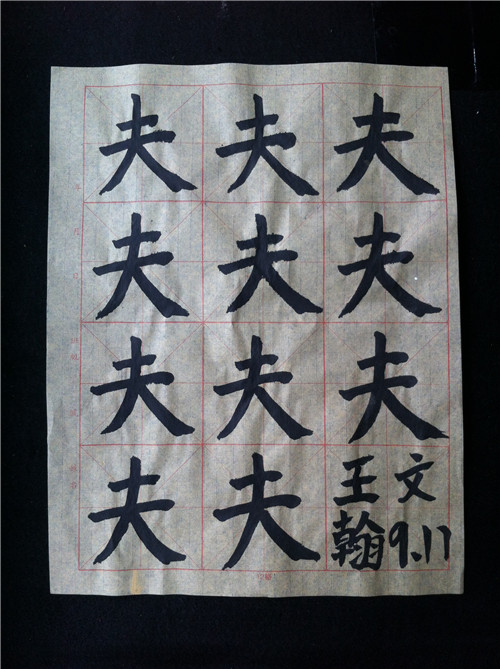 夫夫夫
夫夫夫
夫夫夫
夫夫王文
翰9.11